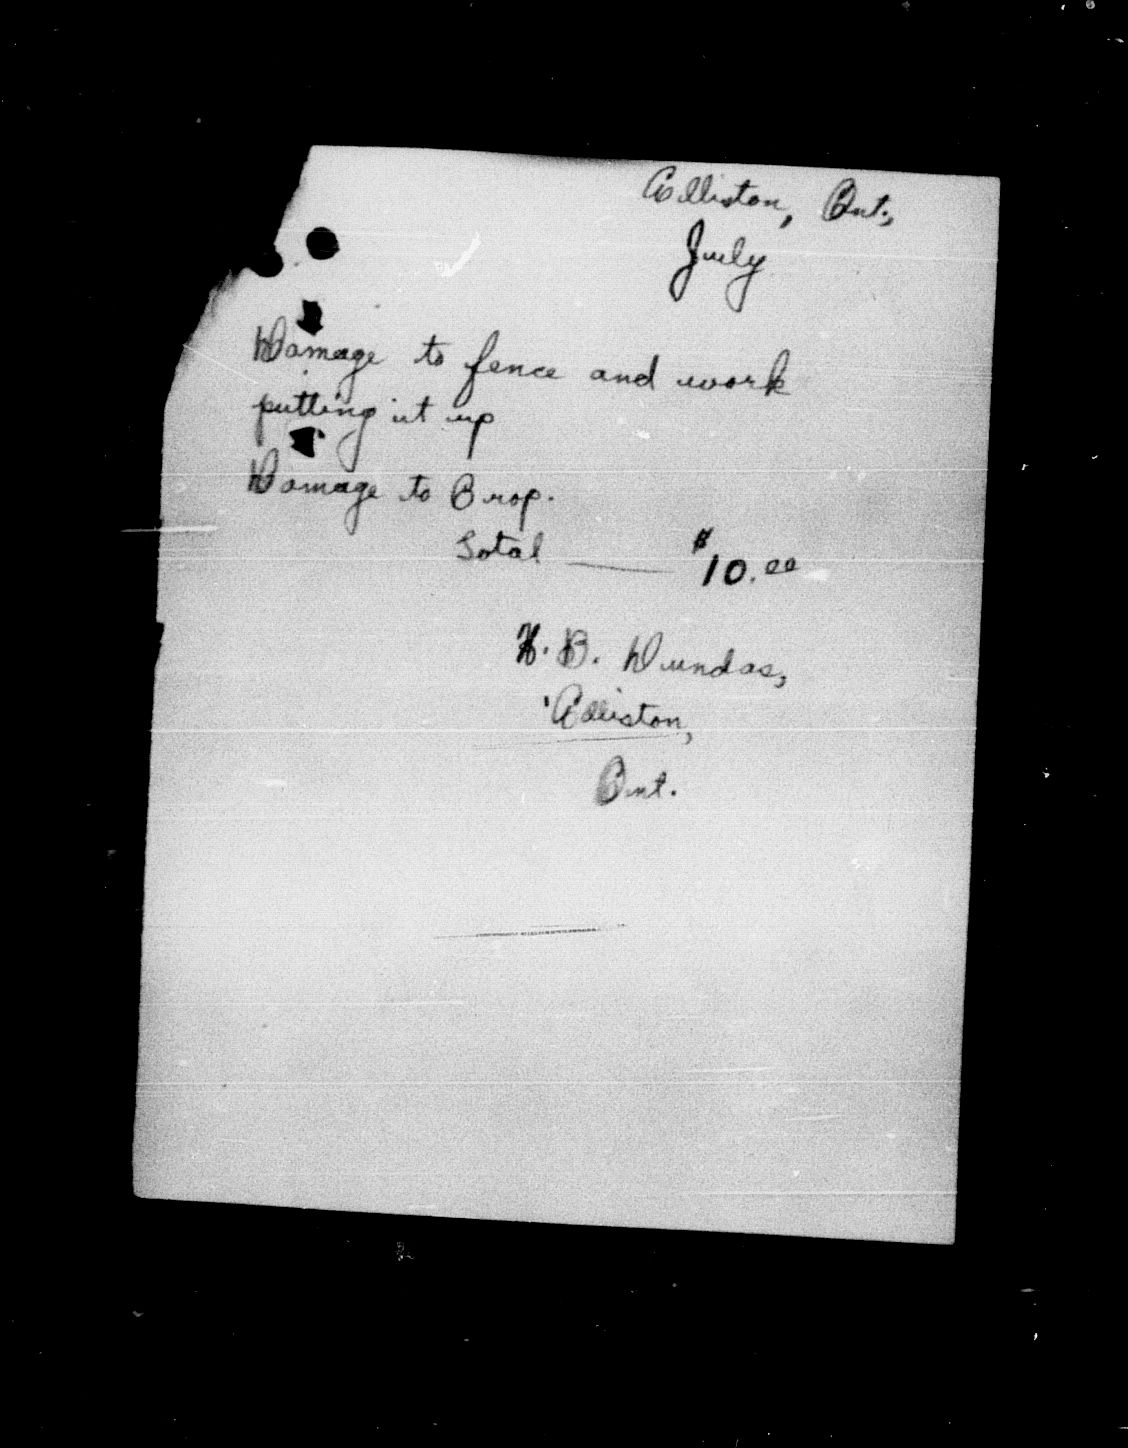 Alliston, Ont.,
July
Damage to fence and work
putting it up
Damage to Crop.
Total — $10.00
H. B. Dundas,
Alliston,
Ont.